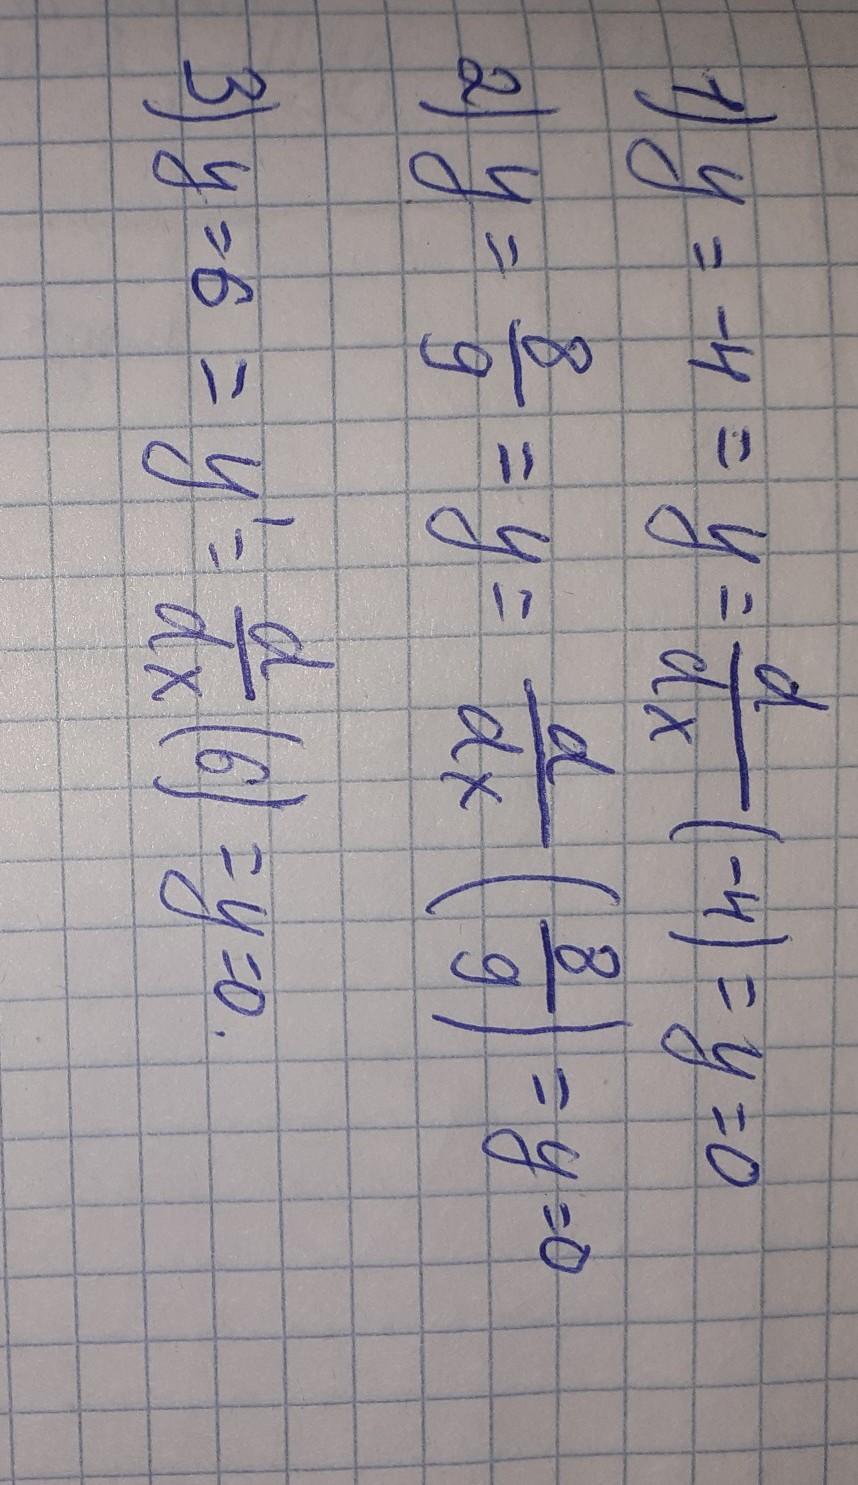 1) y = -4 = y = d/dx (-4) = y = 0
2) y = 8/9 = y = d/dx (8/9) = y = 0
3) y = 6 = y' = d/dx (6) = y = 0.